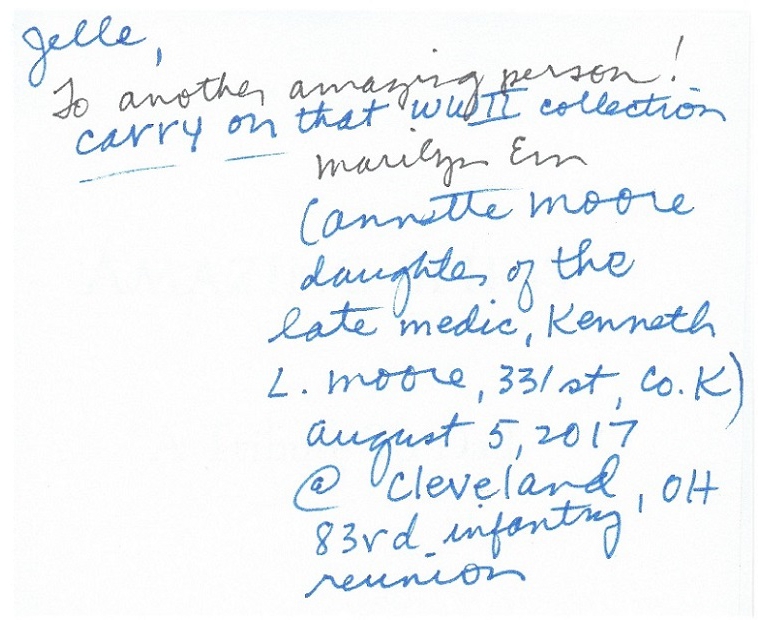 Jelle,
To another amazing person!
carry on that WWII collection
Marilyn
(annette moore
daughter of the
late medic, Kenneth
L. moore, 331st, Co. K)
august 5, 2017
@ Cleveland, OH
83rd infantry
reunion